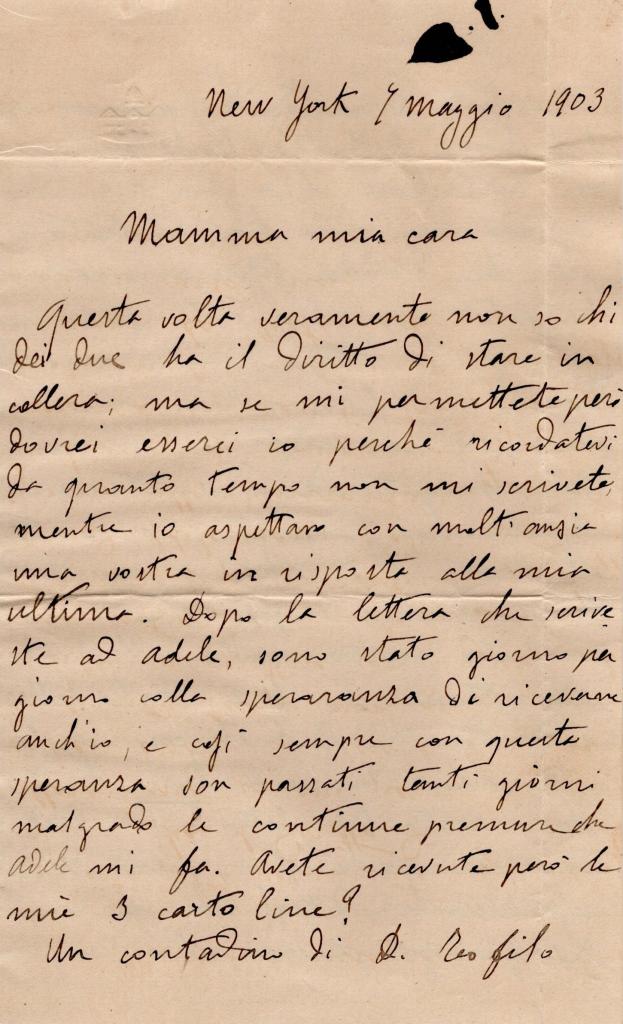 New York 7 Maggio 1903
Mamma mia cara
Questa volta veramente non so chi
dei due ha il diritto di stare in
collera; ma se mi permettete però
dovrei esserci io perché ricordatevi
da quanto tempo non mi scrivete,
mentre io aspettavo con molt'ansia
una vostra in risposta alla mia
ultima. Dopo la lettera che scrive
ste ad Adele, sono stato giorno per
giorno colla speraranza di riceverne
anch'io, e così sempre con questa
speranza son passati tanti giorni
malgrado le continue premure che
Adele mi fa. Avete ricevute però le
mie 3 cartoline?
Un contadino di D. Teofilo